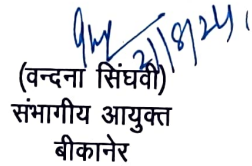 2/8/24
(वन्दना सिंघवी)
संभागीय आयुक्त
बीकानेर